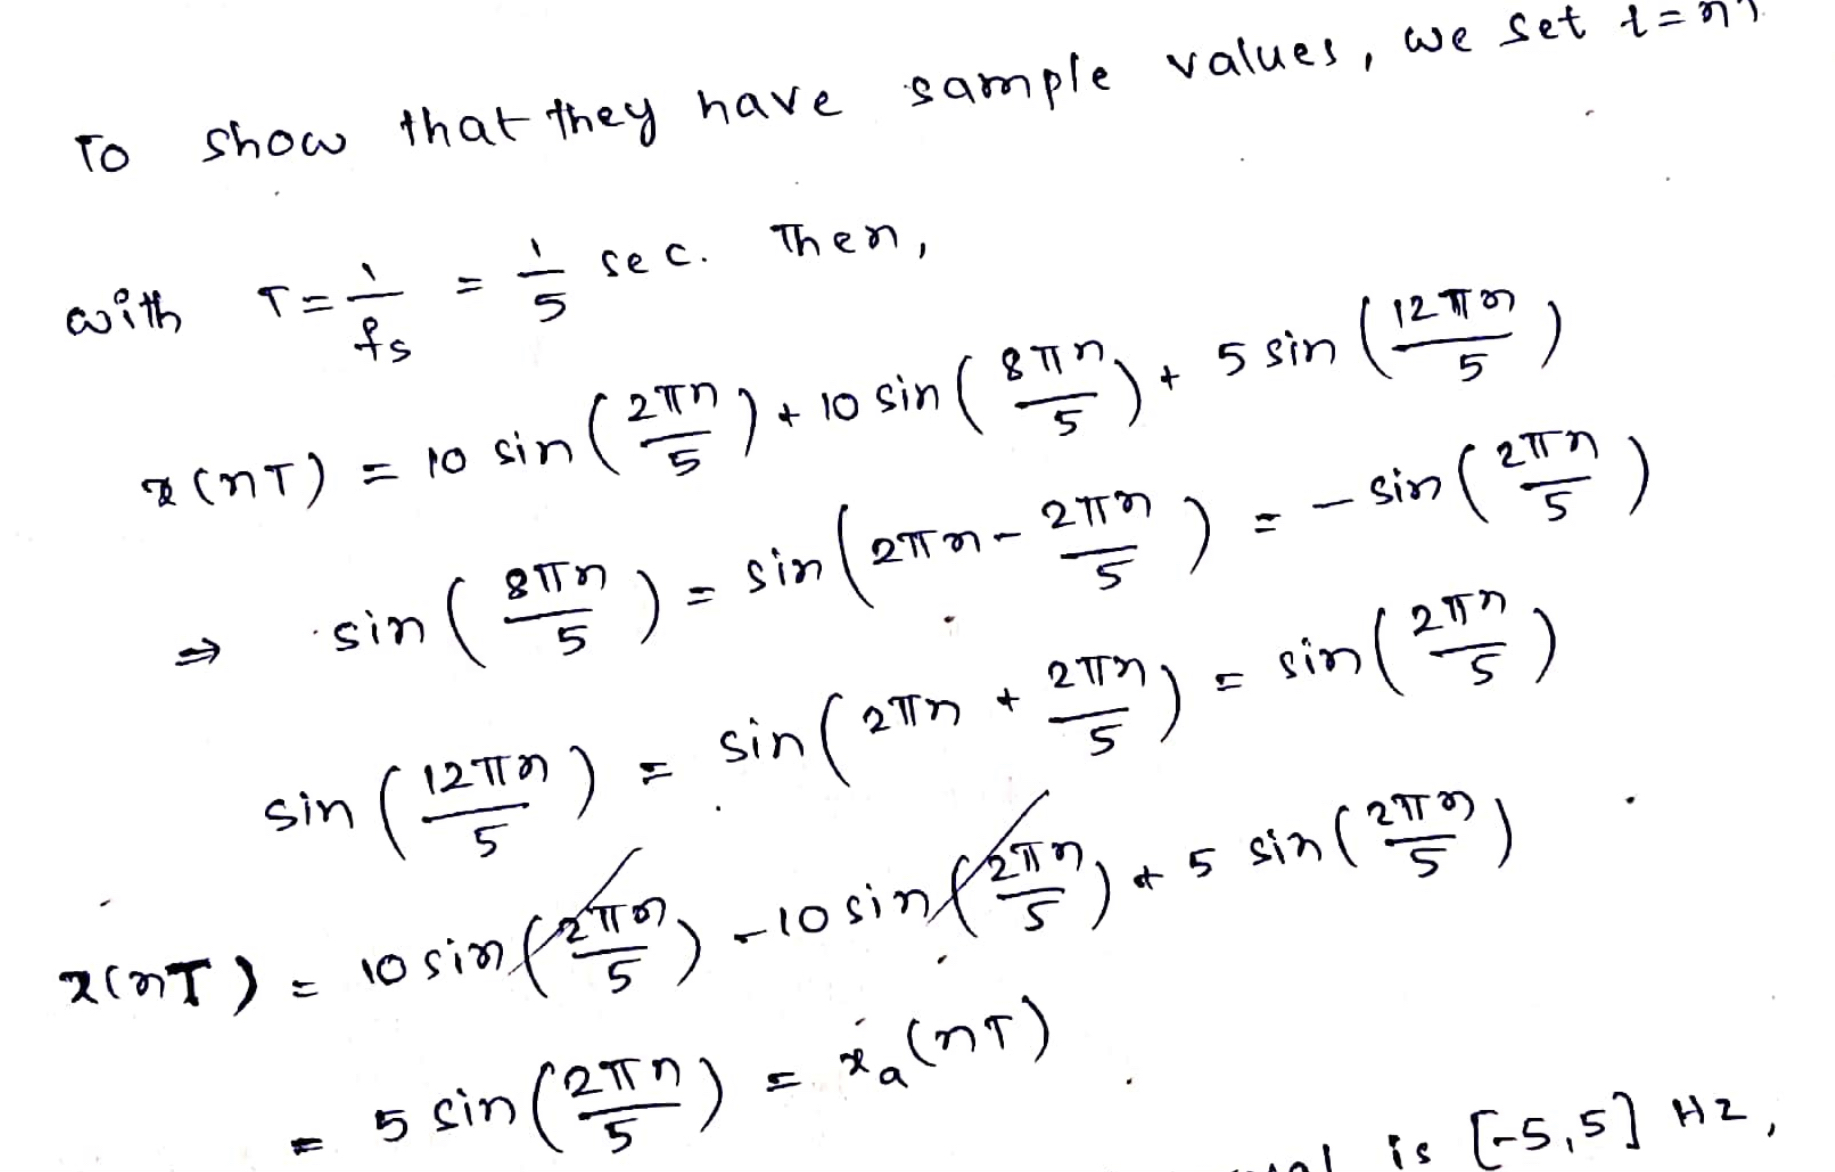 To show that they have sample values, we set t = nT
with T = 1/fs = 1/5 sec. Then,
x(nT) = 10 sin(2πn/5) + 10 sin(8πn/5) + 5 sin(12πn/5)
⇒ sin(8πn/5) = sin(2πn - 2πn/5) = - sin(2πn/5)
sin(12πn/5) = sin(2πn + 2πn/5) = sin(2πn/5)
x(nT) = 10 sin(2πn/5) - 10 sin(2πn/5) + 5 sin(2πn/5)
= 5 sin(2πn/5) = xa(nT)
is [-5,5] Hz,